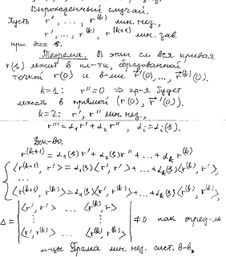 Вырожденный случай.
Пусть r', ..., r^(k) мин. нез.,
r', ..., r^(k), r^(k+1) мин. зав.
при всех s.
Теорема. В этом сл вся кривая
r(s) лежит в пл-ти, образованной
точкой r(0) и в-ми r'(0), ..., r^(k)(0).
k=1: r''=0 ⇒ кр-я будет
лежать в прямой (r(0), r'(0)).
k=2: r', r'' мин. нез.,
r''' = α₁r' + α₂r'', αᵢ = αᵢ(s).
Док-во.
r^(k+1) = α₁(s)r' + α₂(s)r'' + ... + αₖ r^(k)
⟨r^(k+1), r'⟩ = α₁(s)⟨r', r'⟩ + ... + αₖ(s)⟨r^(k), r'⟩,
...
⟨r^(k+1), r^(k)⟩ = α₁(s)⟨r', r^(k)⟩ + ... + αₖ(s)⟨r^(k), r^(k)⟩,
Δ = | ⟨r', r'⟩ ... ⟨r^(k), r'⟩ |
⋮ ⋮ ≠ 0 как опред-ль
| ⟨r', r^(k)⟩ ... ⟨r^(k), r^(k)⟩ |
м-цы Грама мин. нез. сист. в-в.